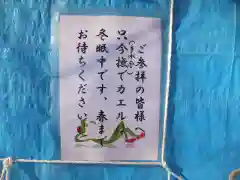 ご参拝の皆様
只今撫でカエル
(手水舎)
冬眠中です、春まで
お待ちください